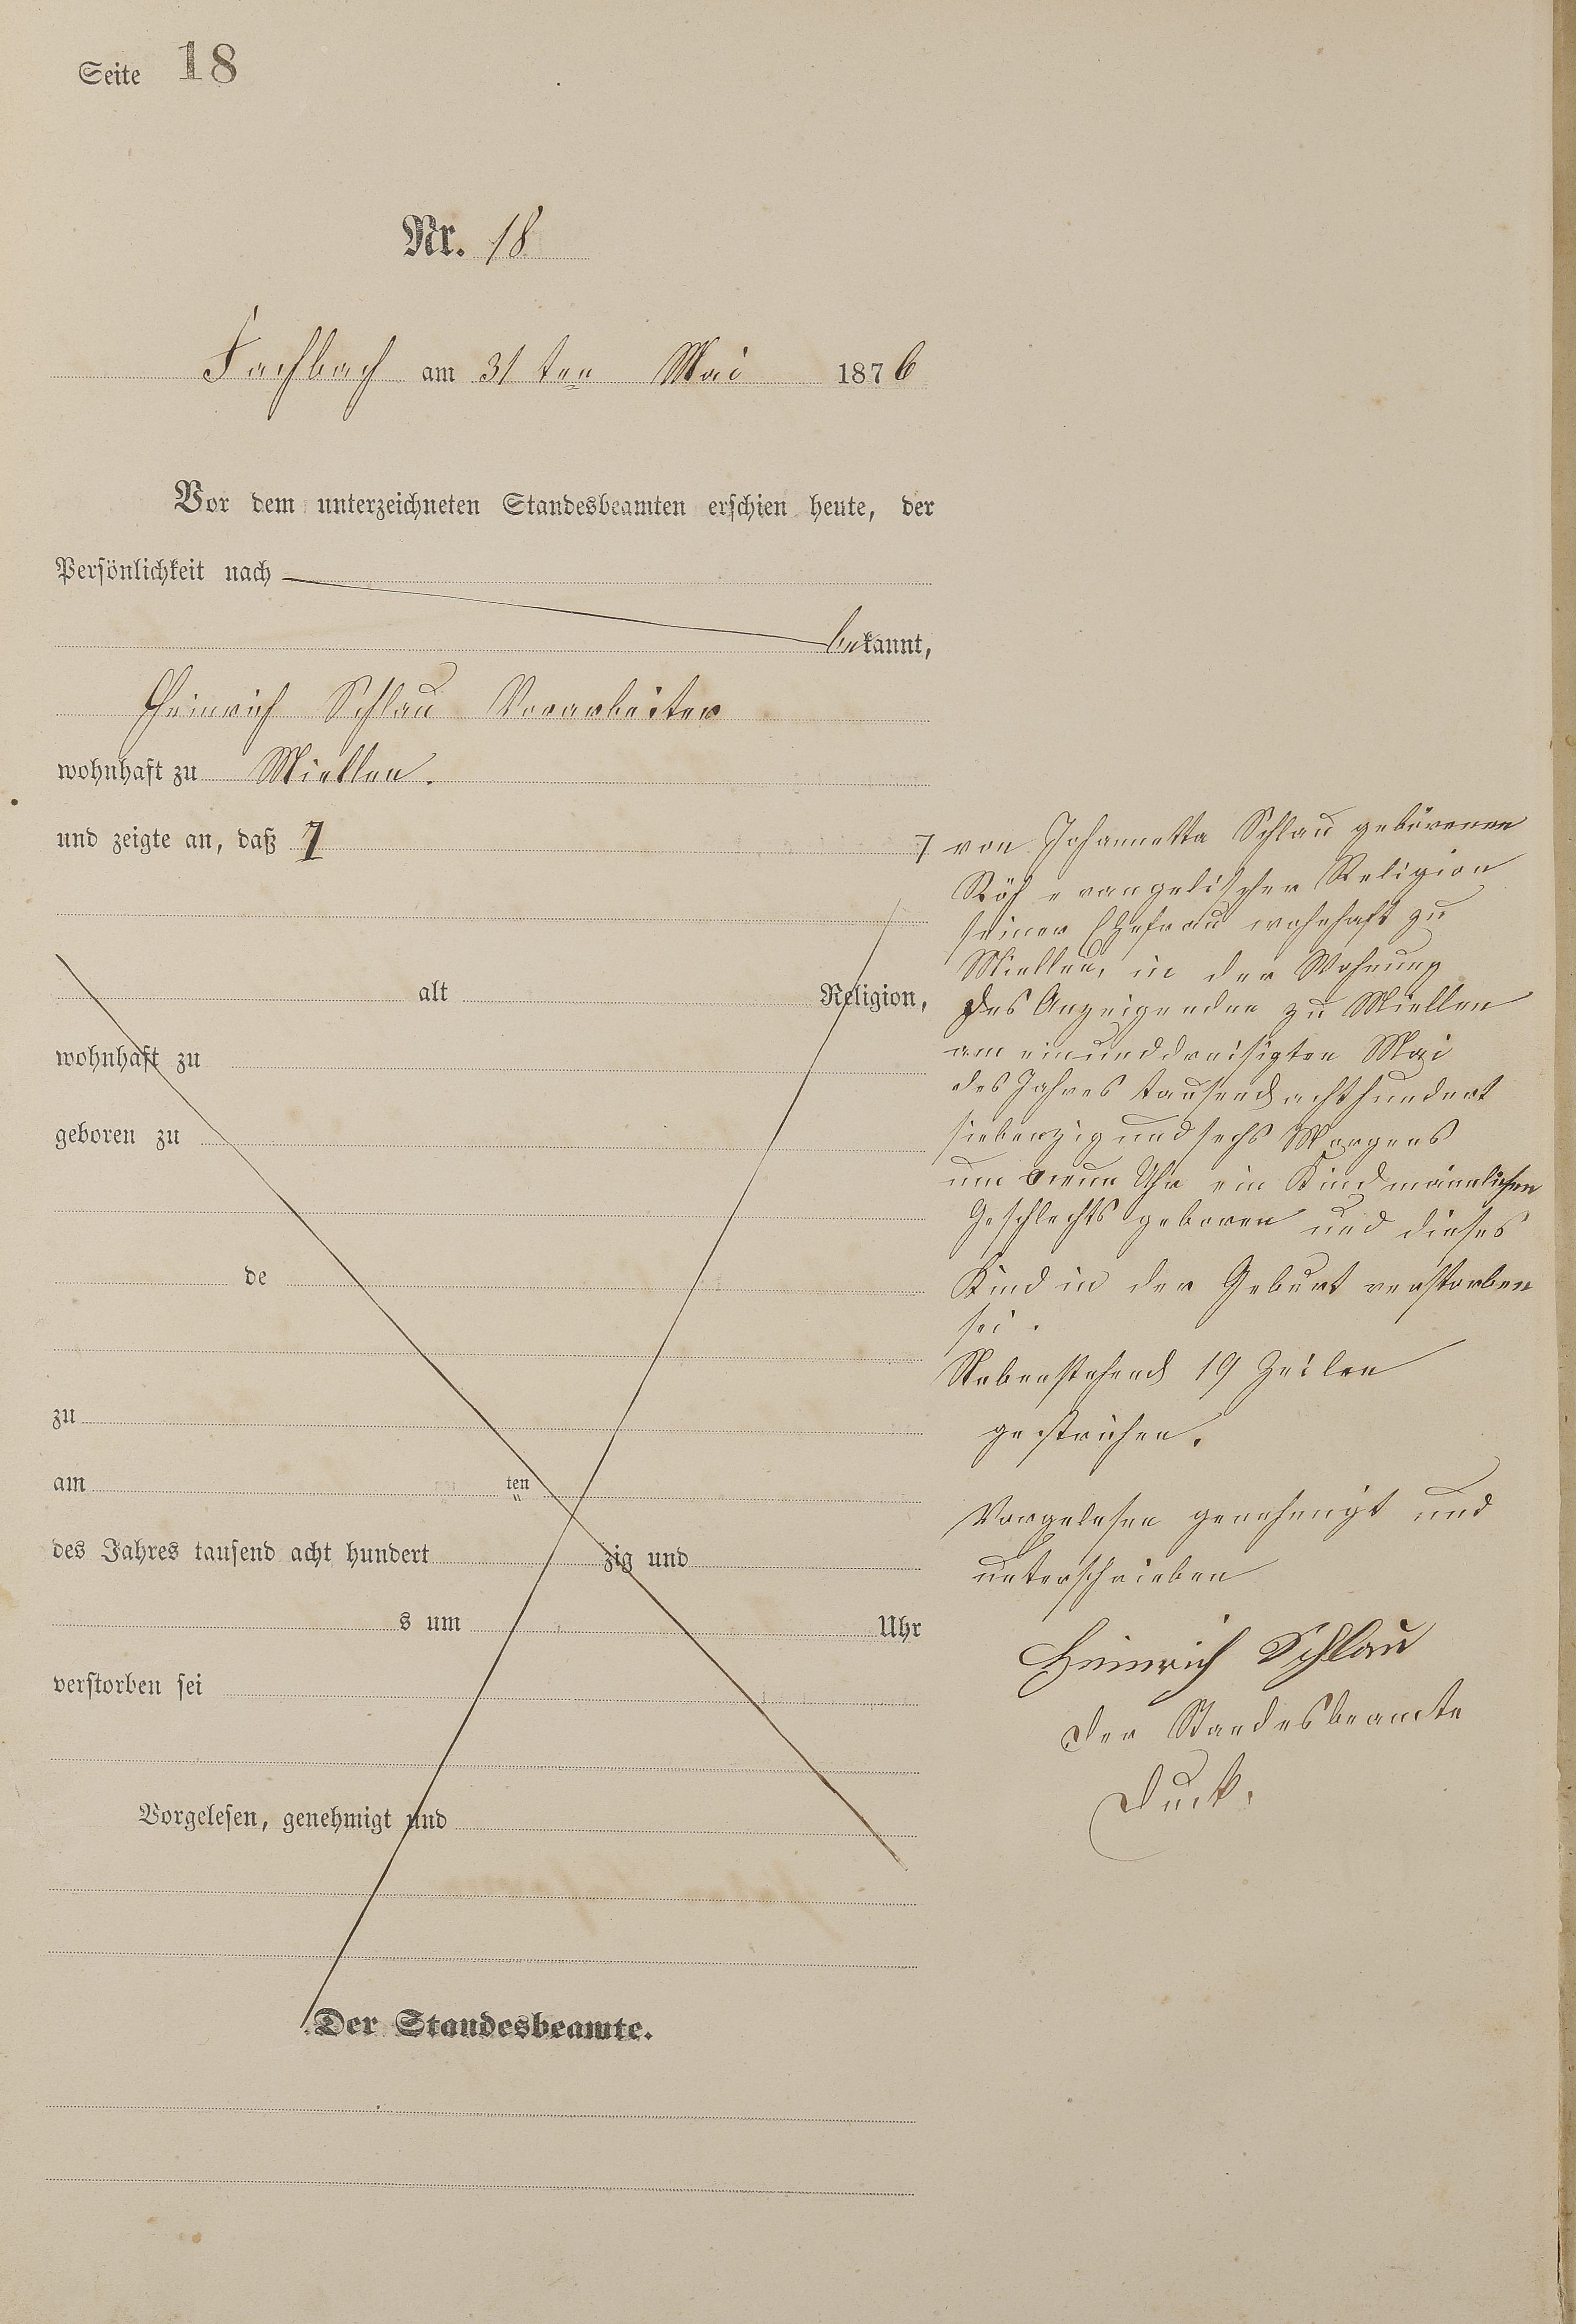 Seite 18
Nr. 18
Fachbach am 31 ten Mai 1876
Vor dem unterzeichneten Standesbeamten erschien heute, der
Persönlichkeit nach
bekannt,
Heinrich Schlau Vorarbeiter
wohnhaft zu Miellen.
und zeigte an, daß ⁊
alt Religion,
wohnhaft zu
geboren zu
de
zu
am ten
des Jahres tausend acht hundert zig und
s um Uhr
verstorben sei
Vorgelesen, genehmigt und
Der Standesbeamte.
⁊ von Johannetta Schlau geborenen
evangelischer Religion
seiner Ehefrau wohnhaft zu
Miellen, in der Wohnung
des Anzeigenden zu Miellen
am einunddreisigten Mai
des Jahres tausend achthundert
siebenzig und sechs Morgens
um neun Uhr ein Kind männlichen
Geschlechts geboren und dieses
Kind in der Geburt verstorben
sei.
Nebenstehend 19 Zeilen
gestrichen.
Vorgelesen genehmigt und
unterschrieben
Heinrich Schlau
Der Standesbeamte
Duck.